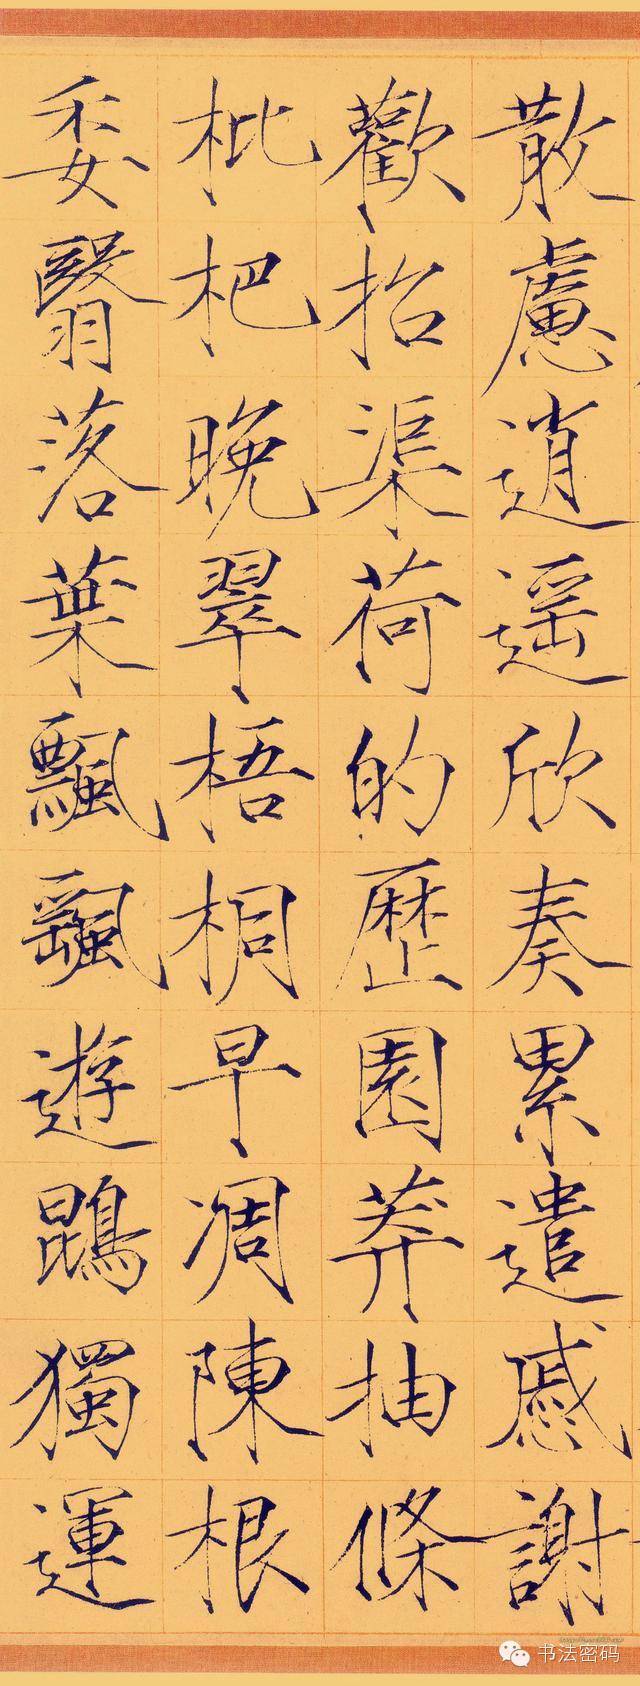 散慮逍遥欣奏累遣慼謝
歡招渠荷的歷園莽抽條
枇杷晚翠梧桐早凋陳根
委翳落葉飄颻遊鵾獨運
书法密码